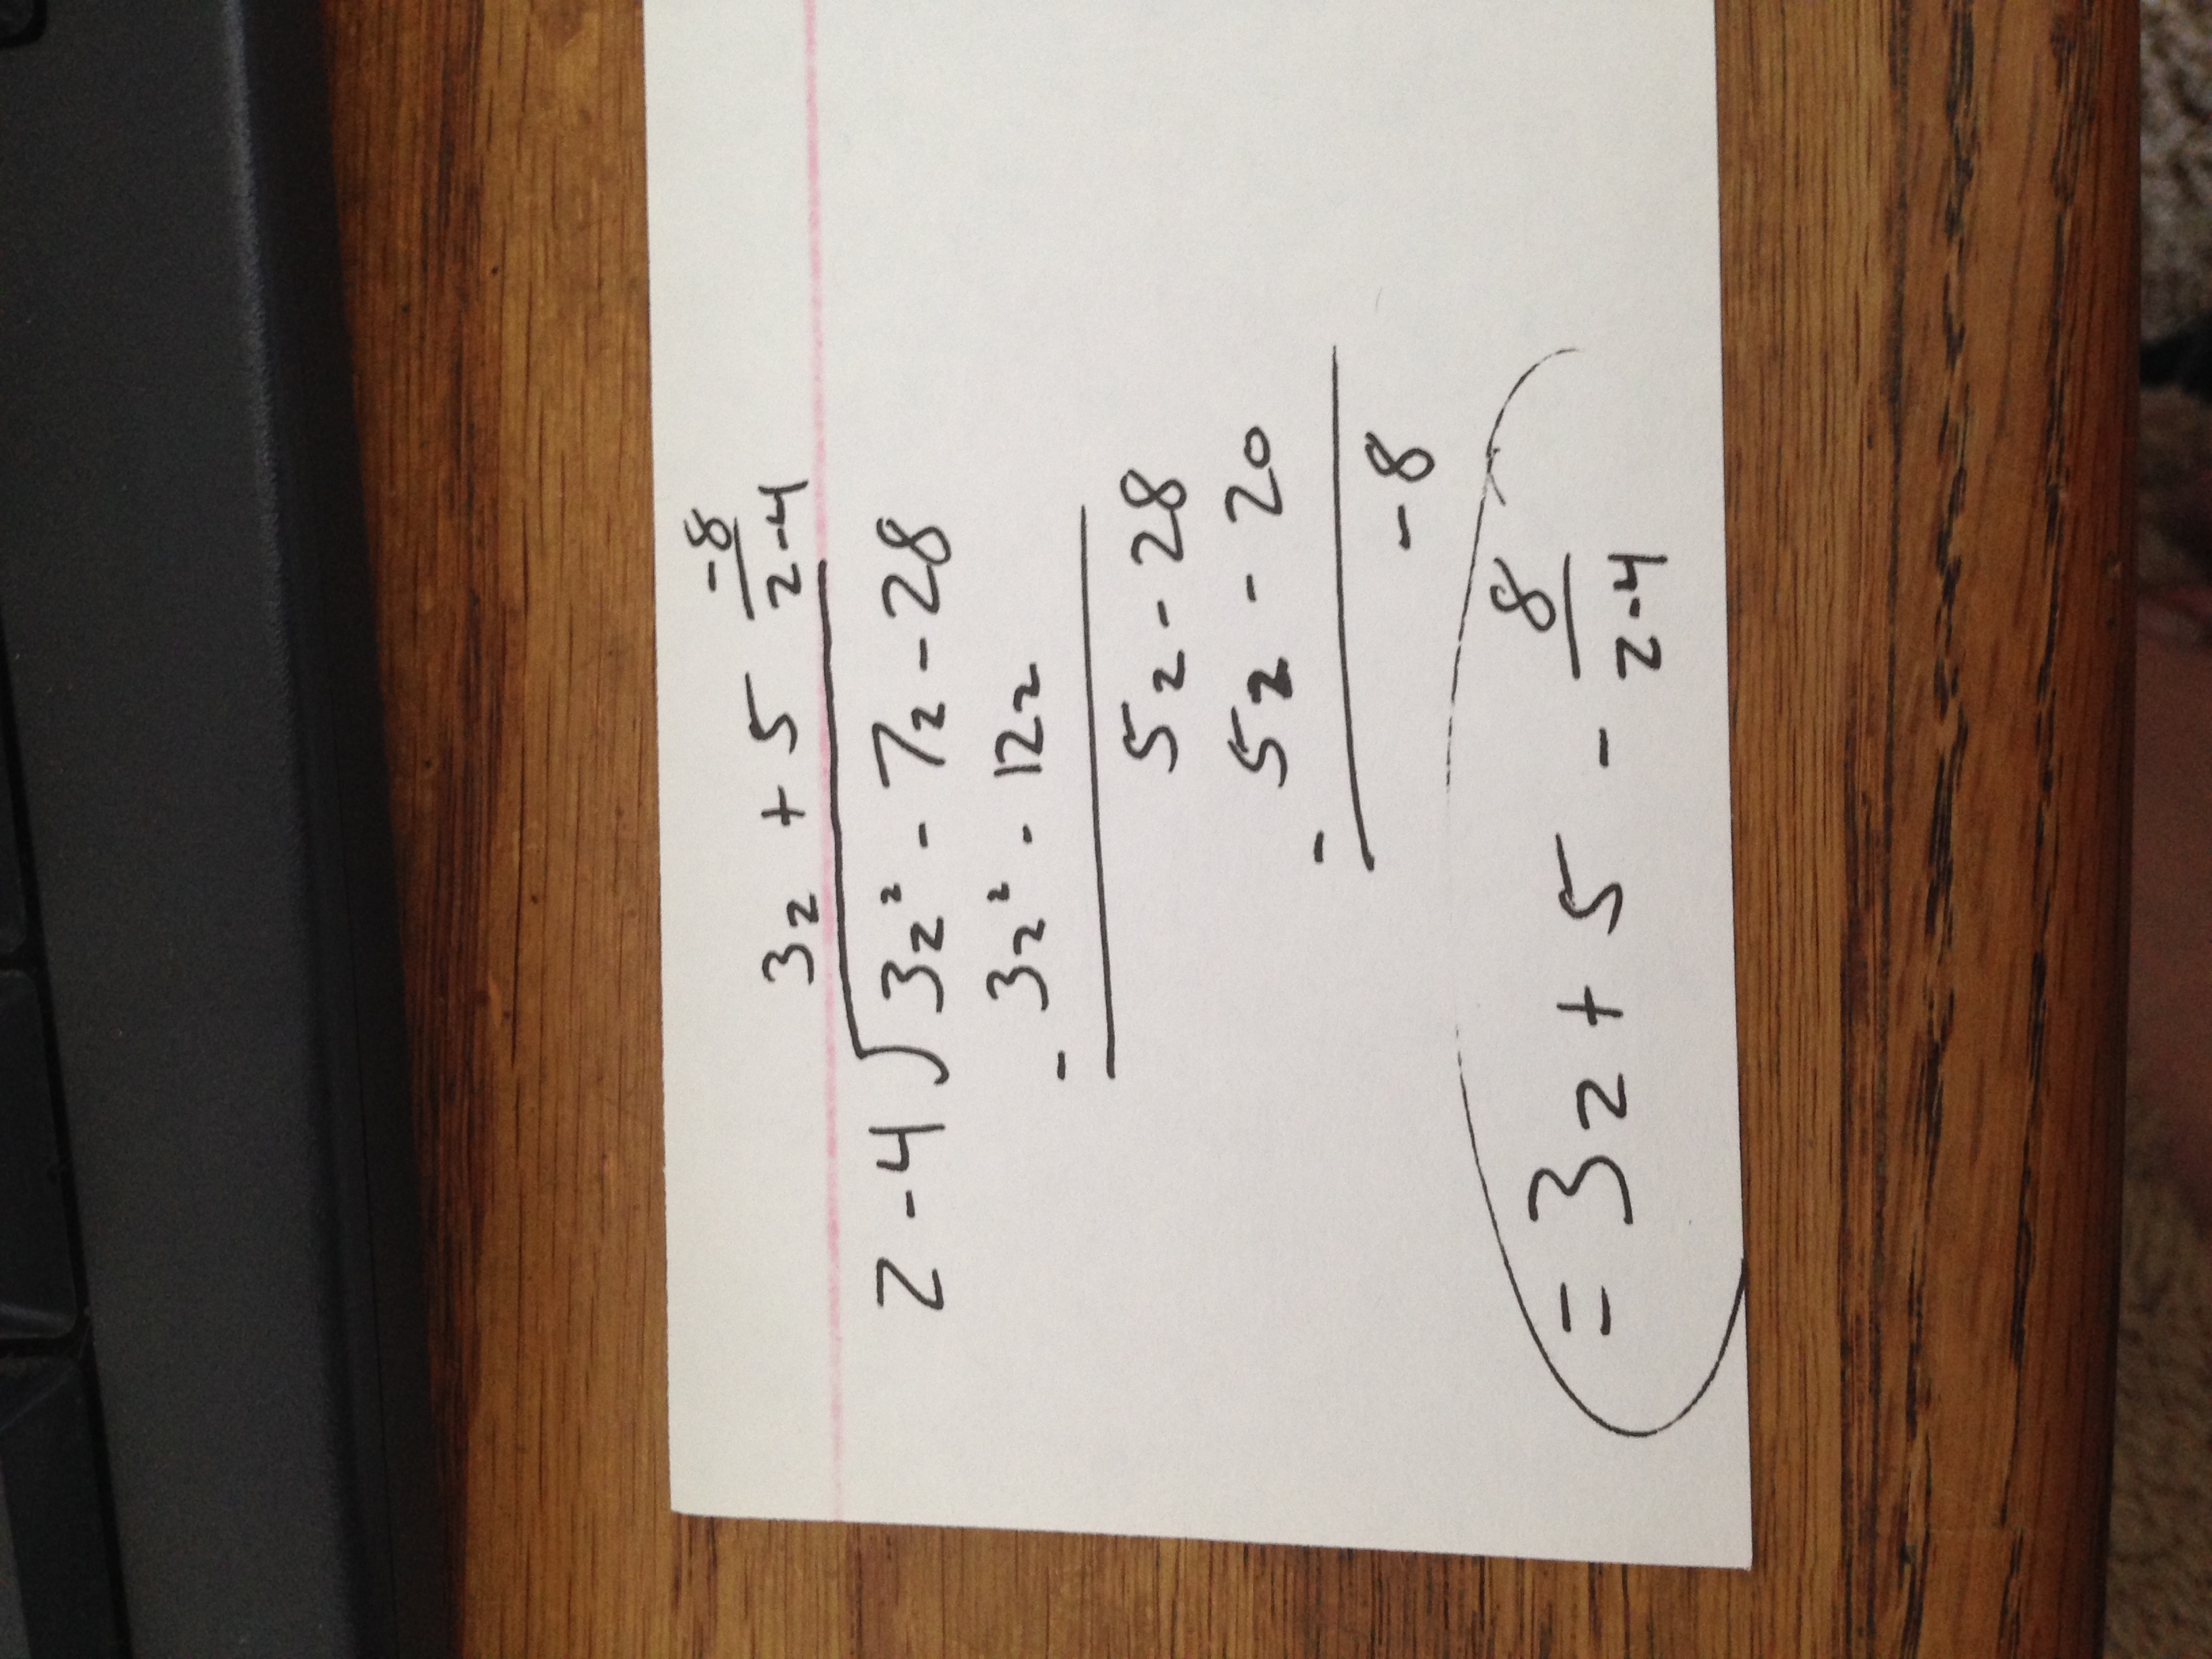 -8
3z + 5 z-4
z - 4 √3z² - 7z - 28
- 3z² - 12z
5z - 28
- 5z - 20
- 8
8
= 3z + 5 - z-4